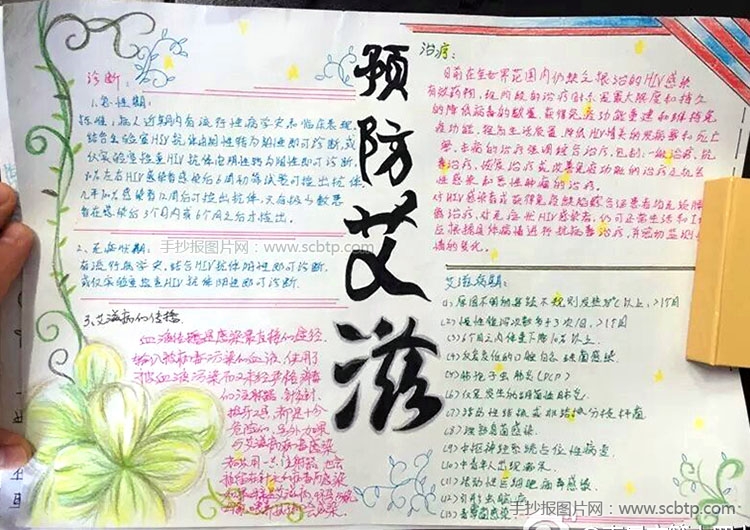 预防艾滋
诊断:
1.急性期:
标准:病人近期内有流行性病学史和临床表现,
结合实验室HIV抗体由阴性转为阳性即可诊断,或
仅实验室检查HIV抗体由阴性转为阳性即可诊断。
80%左右HIV感染者感染后6周初筛试验可检出抗体,
几乎100%感染者12周后可检出抗体,只有极少数患
者在感染后3个月内或6个月后才检出。
2、无症状期:
有流行病学史,结合HIV抗体阳性即可诊断,
或仅实验室检查HIV抗体阳性即可诊断。
3、艾滋病的传播
血液传播是感染最直接的途径
输入被病毒污染的血液,使用了
被血液污染而又未经严格消毒
的注射器、针灸针、
拔牙工具,都是十分
危险的。另外
与艾滋病病毒感染
治疗:
目前在全世界范围内仍缺乏根治的HIV感染
有效药物,现阶段的治疗目标是最大限度和持久
的降低病毒的载量,获得免疫功能重建和维持免
疫功能,提高生活质量,降低HIV相关的发病率和死亡
率。本病的治疗强调综合治疗,包括:一般治疗、抗病
毒治疗、恢复治疗或改善免疫功能的治疗及机会
性感染和恶性肿瘤的治疗。
对HIV感染者或获得免疫缺陷综合征患者均无须隔
离治疗,对无症状HIV感染者,仍可正常生活和工
根据具体病情进行抗病毒治疗,并密切监测
情的变化。
艾滋病期:
(1)原因不明的持续不规则发热38℃以上,>1个月
(2)慢性腹泻次数多于3次/日,>1个月
(3)6个月之内体重下降10%以上.
(4)反复发作的口腔白色念菌感染
(5)肺孢子虫肺炎(PCP)
(6)反复发生的细菌性肺炎
(7)活动性结核或非结核分枝杆菌
(8)深部真菌感染
(9)中枢神经系统占位性病变
(10)中青年人出现痴呆
(11)活动性巨细胞病毒感染
(12)弓形虫脑病
(13)青霉菌感染
手抄报图片网:www.scbtp.com
手抄报图片网:www.scbtp.com
手抄报图片网:www.scbtp.com